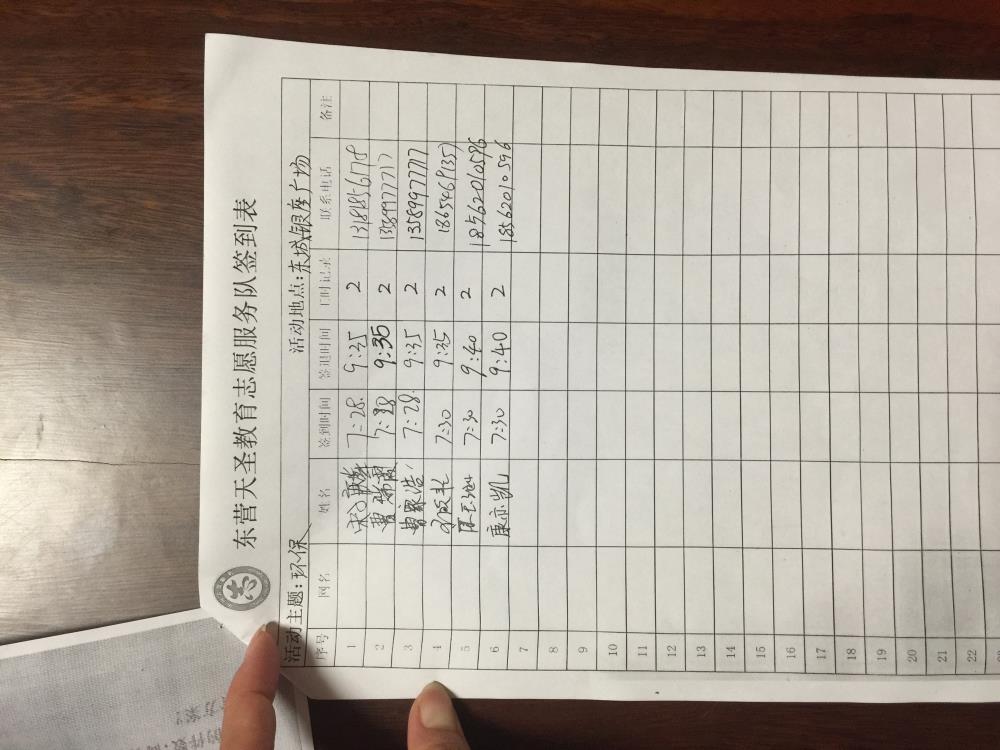 东营天圣教育志愿服务队签到表
活动主题:环保 活动地点:东城银座广场
序号 网名 姓名 签到时间 签退时间 工时记录 联系电话 备注
1 7:28 9:35 2
2 7:28 9:35 2 13589977717
3 曹家浩 7:28 9:35 2 13589977777
4 7:30 9:35 2
5 7:30 9:40 2 18562010596
6 康亦凯 7:30 9:40 2 18562010596
7
8
9
10
11
12
13
14
15
16
17
18
19
20
21
22